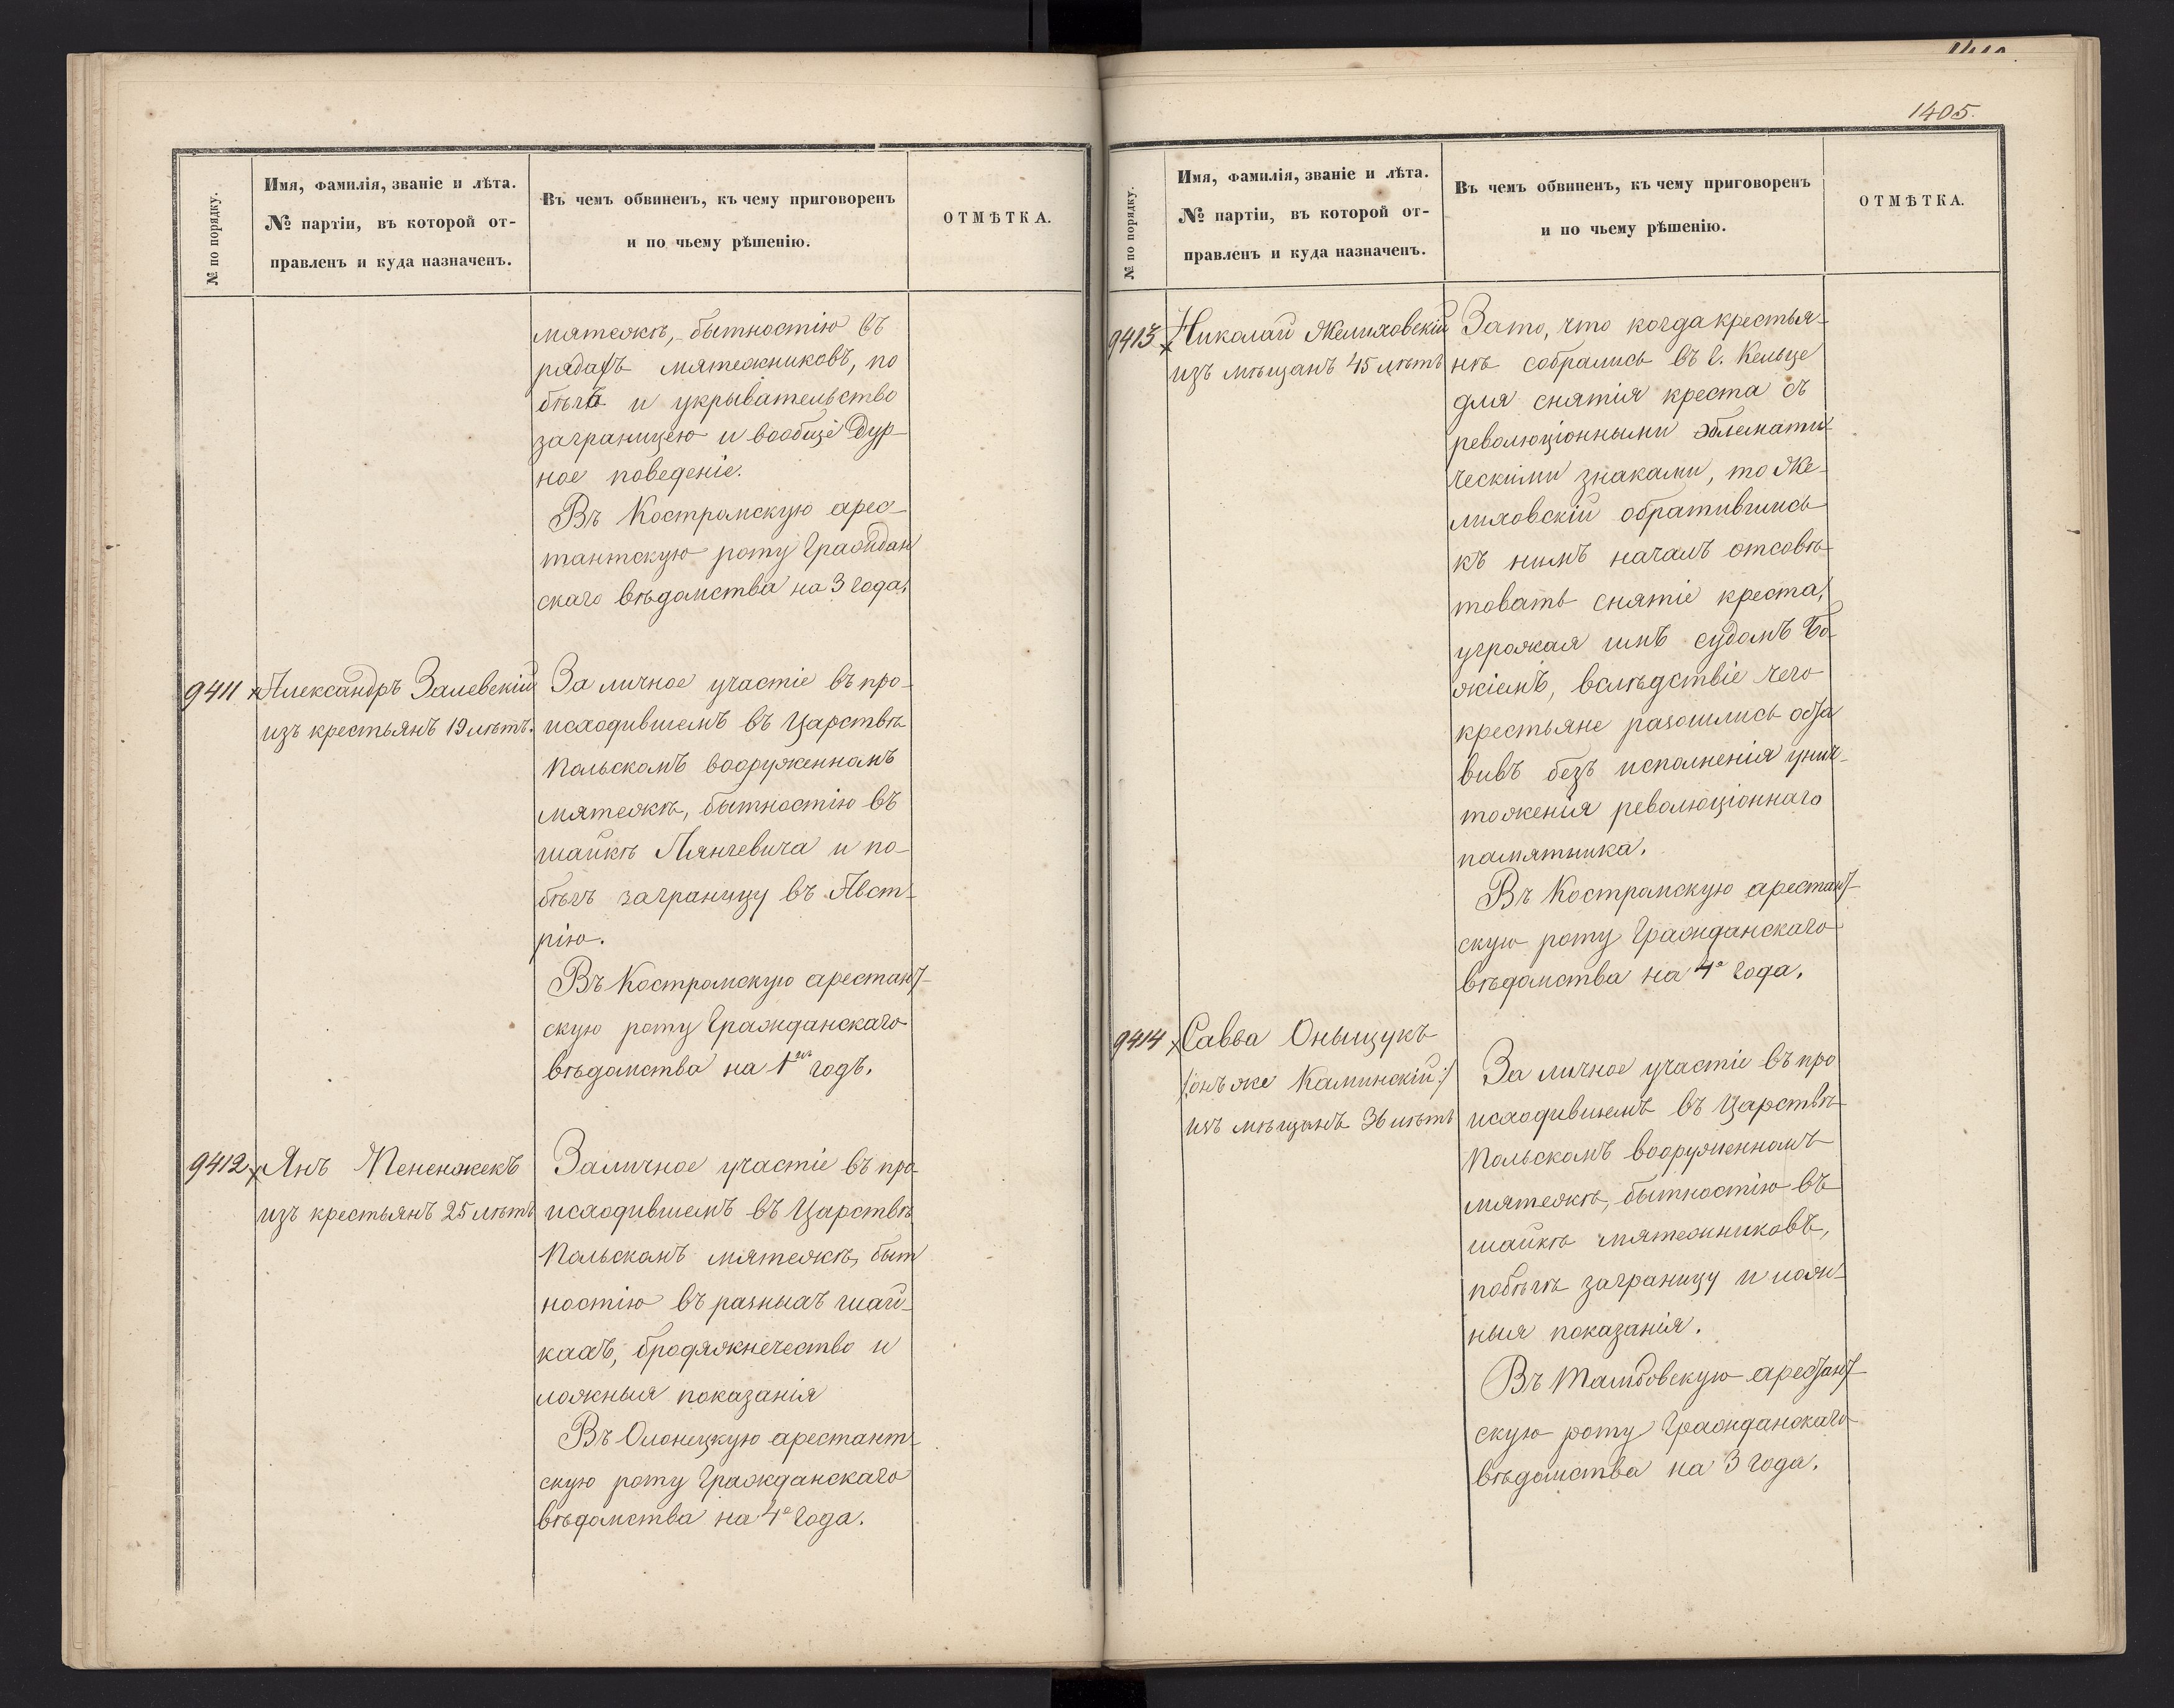 1405.
№ по порядку.
Имя, фамилія, званіе и лѣта.
№ партіи, въ которой от-
правленъ и куда назначенъ.
Въ чемъ обвиненъ, къ чему приговоренъ
и по чьему рѣшенію.
ОТМѢТКА.
мятежѣ, бытностію въ
рядахъ мятежниковъ, по
бѣгъ и укрывательство
заграницею и вообще дур-
ное поведеніе.
Въ Костромскую арес-
тантскую роту Граждан
скаго вѣдомства на 3 года.
9411 Александръ Залевскій
изъ крестьянъ 19 лѣтъ.
За личное участіе въ про-
исходившемъ въ Царствѣ
Польскомъ вооруженномъ
мятежѣ, бытностію въ
шайкѣ Лянгевича и по-
бѣгъ заграницу въ Авст-
рію.
Въ Костромскую арестант-
скую роту Гражданскаго
вѣдомства на 1инъ годъ.
9412 Янъ Пененжекъ
изъ крестьянъ 25 лѣтъ
За личное участіе въ про-
исходившемъ въ Царствѣ
Польскомъ мятежѣ, быт
ностію въ разныхъ шай-
кахъ, бродяжничество и
ложныя показанія
Въ Олонецкую арестант-
скую роту Гражданскаго
вѣдомства на 4е года.
№ по порядку.
Имя, фамилія, званіе и лѣта.
№ партіи, въ которой от-
правленъ и куда назначенъ.
Въ чемъ обвиненъ, къ чему приговоренъ
и по чьему рѣшенію.
ОТМѢТКА.
9413 Николай Желиховскій
изъ мѣщанъ 45 лѣтъ
За то, что когда крестья-
нѣ собрались въ г. Кельце
для снятія креста съ
революціонными эблемати-
ческими знаками, то Же-
лиховскій обратившись
къ нимъ началъ отсовѣ-
товать снятіе креста,
угрожая имъ судомъ Бо-
жіемъ, вслѣдствіе чего
крестьяне разошлись оста
вивъ безъ исполненія унич-
тоженія революціоннаго
памятника.
Въ Костромскую арестант-
скую роту Гражданскаго
вѣдомства на 4е года.
9414 Савва Оныщукъ
/:онъ же Каминскій:/
изъ мѣщанъ 36 лѣтъ
За личное участіе въ про
исходившемъ въ Царствѣ
Польскомъ вооруженномъ
мятежѣ, бытностію въ
шайкѣ мятежниковъ,
побѣгъ заграницу и лож-
ныя показанія.
Въ Тамбовскую арестант-
скую роту Гражданскаго
вѣдомства на 3 года.